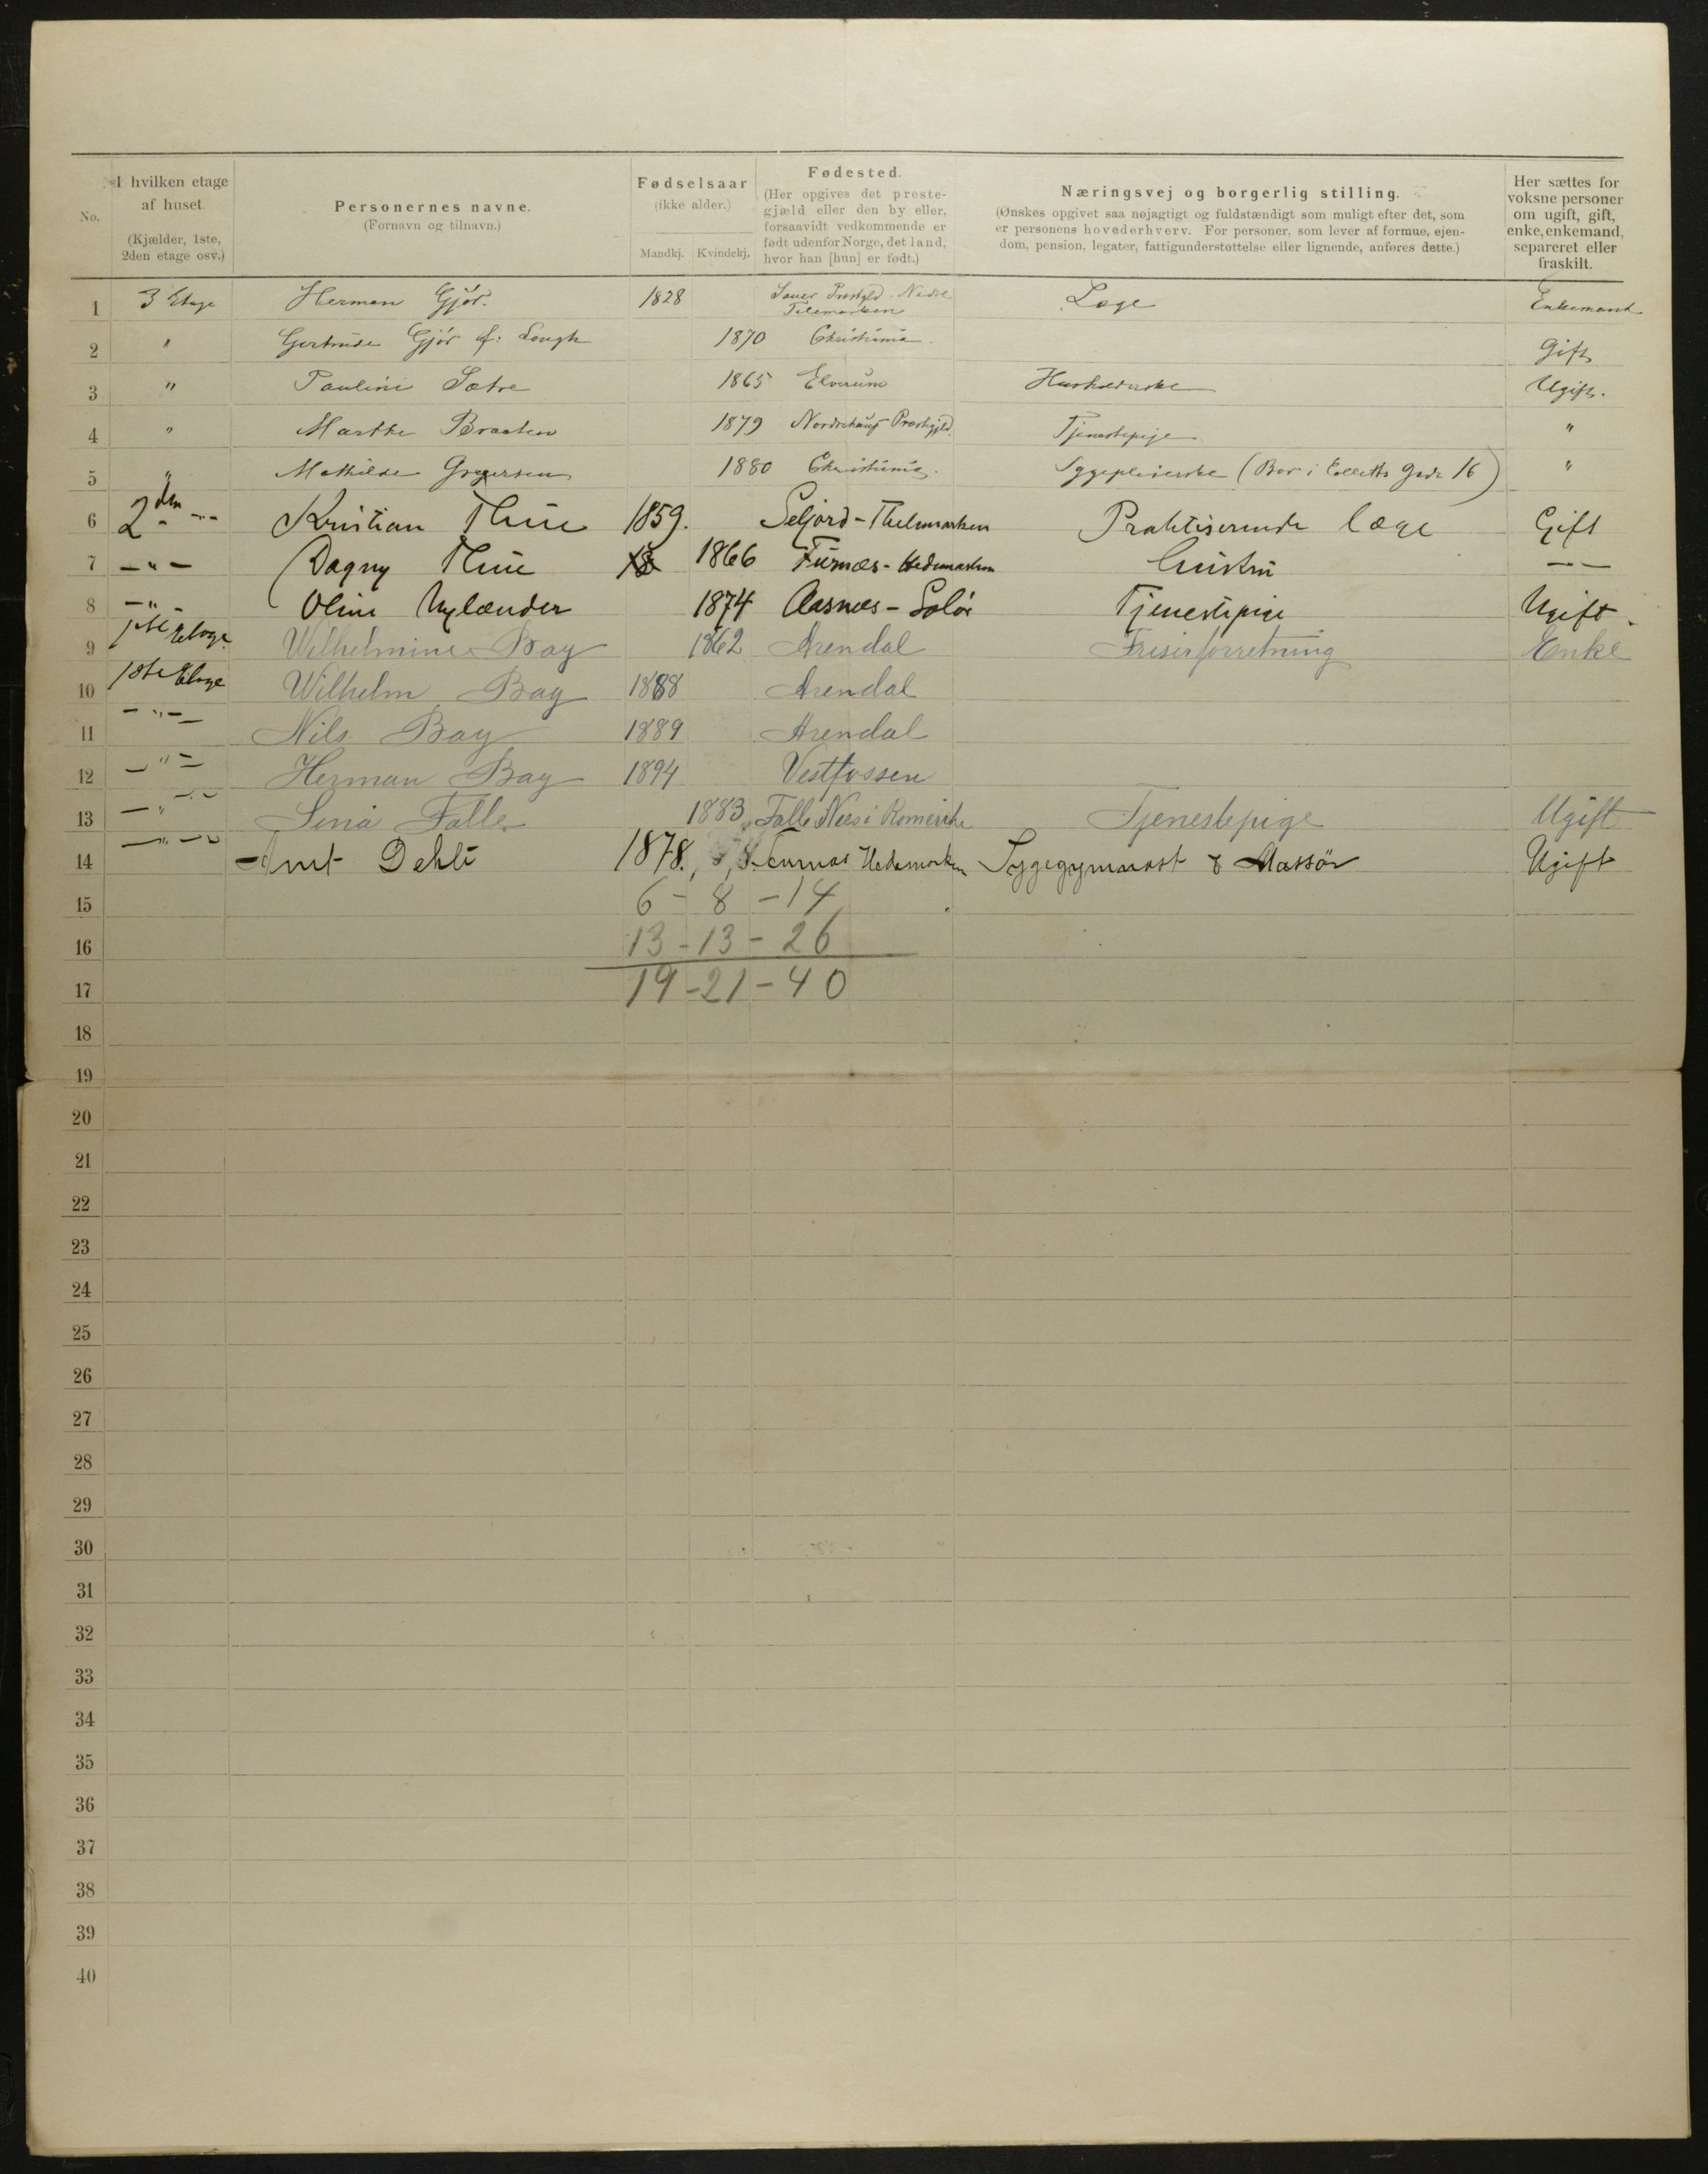 No.
I hvilken etage af huset. (Kjælder, 1ste, 2den etage osv.)
Personernes navne. (Fornavn og tilnavn.)
Fødselsaar (ikke alder.) Mandkj. Kvindekj.
Fødested. (Her opgives det prestegjæld eller den by eller, forsaavidt vedkommende er født udenfor Norge, det land, hvor han [hun] er født.)
Næringsvej og borgerlig stilling. (Ønskes opgivet saa nøjagtigt og fuldstændigt som muligt efter det, som er personens hovederhverv. For personer, som lever af formue, ejendom, pension, legater, fattigunderstøttelse eller lignende, anføres dette.)
Her sættes for voksne personer om ugift, gift, enke, enkemand, separeret eller fraskilt.
1 3 Etage Herman Gjör. 1828 Nedre Telemarken Læge Enkemand
2 " Gertrude Gjör f: 1870 Christiania. Gift
3 " Pauline Sætre 1865 Elverum Husholderske Ugift.
4 " Marthe Braaten 1879 Norderhaug Prestgjld. Tjenestepige "
5 " Mathilde Gregersen 1880 Christiania. Sygepleierske (Bor i Colletts Gade 16) "
6 2den - " - Kristian Thue 1859. Seljord - Thelemarken Praktiserende læge Gift
7 - " - Dagny Thue 1866 Furnæs - Hedemarken Hustru - " -
8 - " - Oline Nylænder 1874 Aasnes - Solör Tjenestepige Ugift.
9 1ste Etage. Wilhelmine Bay 1862 Arendal Friserforretning Enke
10 1ste Etage Wilhelm Bay 1888 Arendal
11 - " - Nils Bay 1889 Arendal
12 - " - Herman Bay 1894 Vestfossen
13 - " - Lina Falle 1883 Falle Nes i Romerike Tjenestepige Ugift
14 - " - Arnt Dehli 1878. Furnæs Hedemarken Sygegymnast & Massör Ugift
15 6 - 8 - 14
16 13 - 13 - 26
17 19 - 21 - 40
18
19
20
21
22
23
24
25
26
27
28
29
30
31
32
33
34
35
36
37
38
39
40